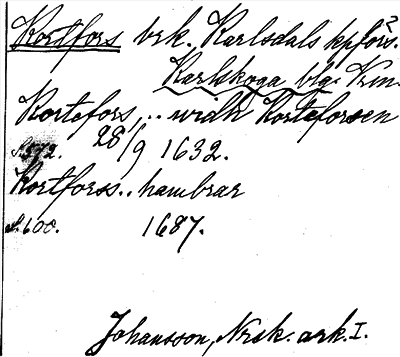 Kortfors brk. Karlsdals kpförs.
Karlskoga blg. Vrm.
Kortefors, .. widh Korteforsen
s. 572. 28/9 1632.
Kortforss .. hambrar
s. 600. 1687.
Johansson, Nrsk. ark. I.